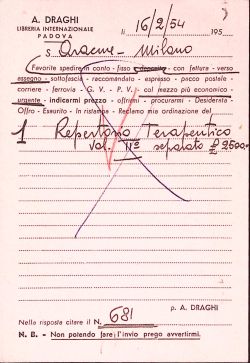 A. DRAGHI
LIBRERIA INTERNAZIONALE
PADOVA
li 16/2/54 195
S. Aracne - Milano
Favorite spedire in conto - fisso - deposito - con fattura - verso
assegno - sottofascia - raccomandato - espresso - pacco postale
corriere - ferrovia - G. V. - P. V. - col mezzo più economico -
urgente - indicarmi prezzo - offrirmi - procurarmi - Desiderata -
Offro - Esaurito - In ristampa - Reclamo mia ordinazione del
1 Repertorio Terapeutico
vol. IIº separato £ 2500.
p. A. DRAGHI
Nella risposta citare il N. 681
N. B. - Non potendo fare l'invio prego avvertirmi.